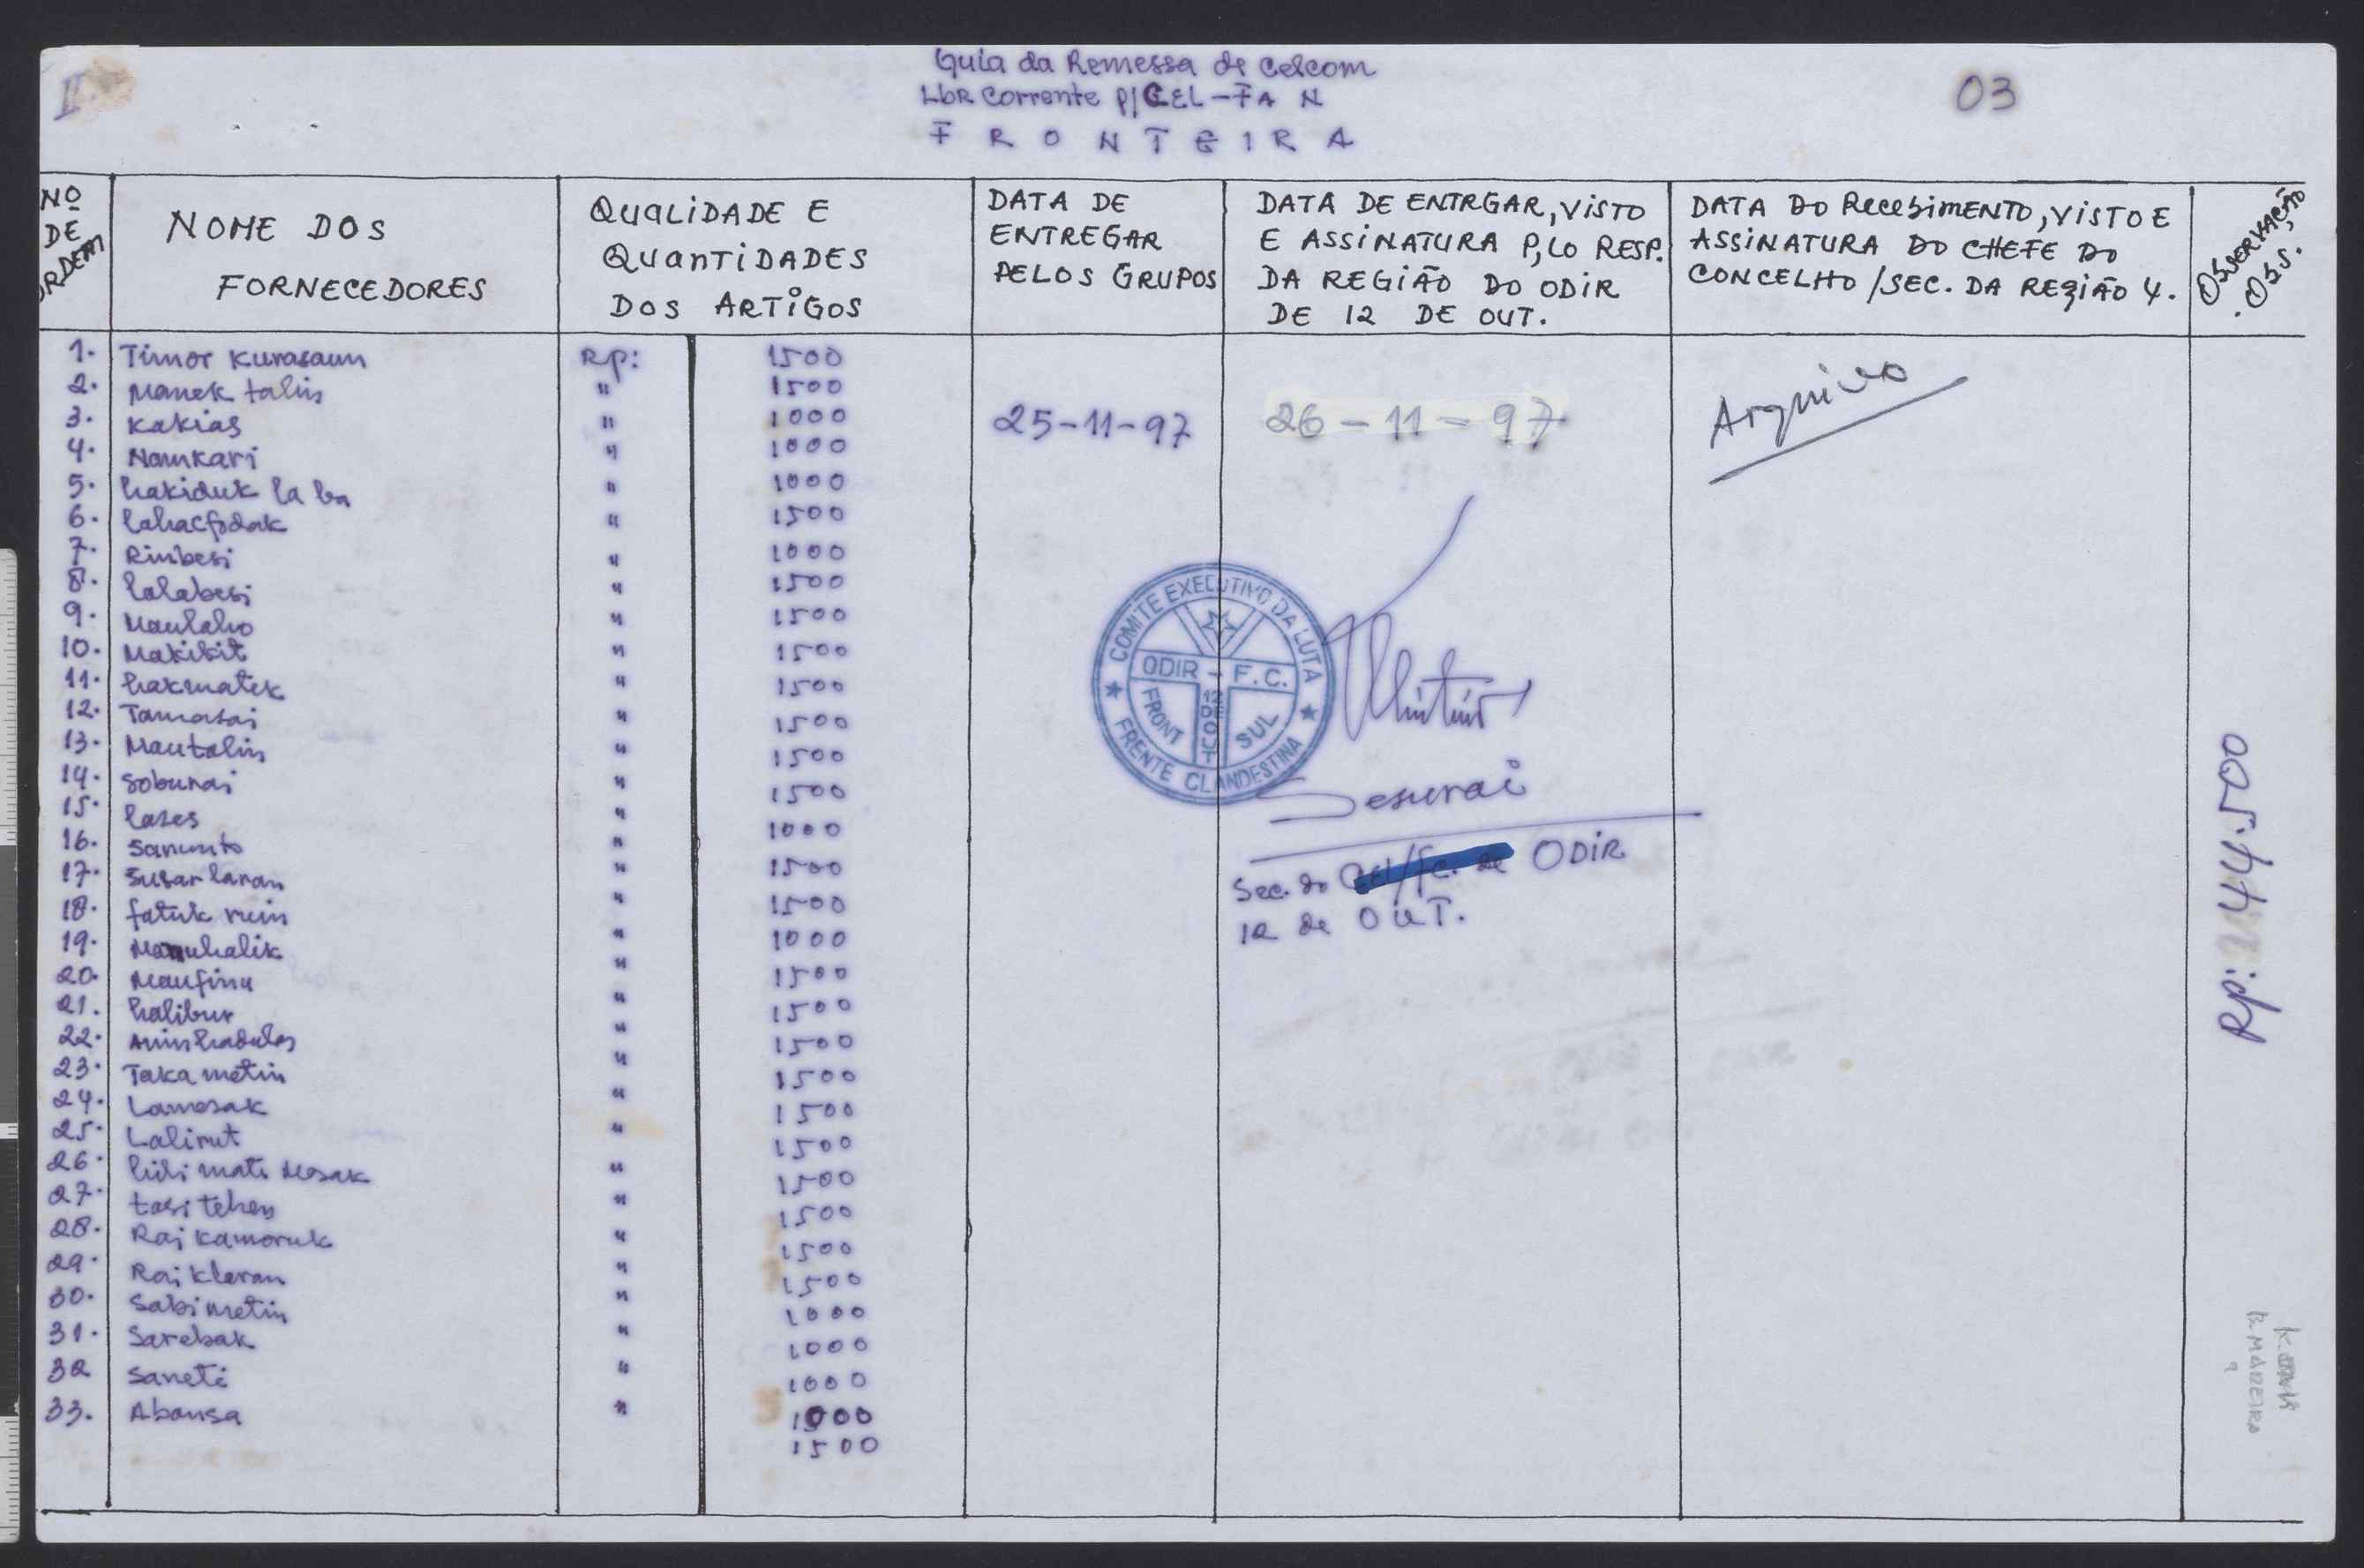 II
Guia da Remessa de Celcom
Lbr Corrente p/CEL-FA N
F R O N T E I R A
03
Nº DE ORDEM
NOME DOS FORNECEDORES
QUALIDADE E QUANTIDADES DOS ARTIGOS
DATA DE ENTREGAR PELOS GRUPOS
DATA DE ENTRGAR, VISTO E ASSINATURA P,LO RESP. DA REGIÃO DO ODIR DE 12 DE OUT.
DATA DO RecebiMENTO, VISTO E ASSINATURA DO CHEFE DO CONCELHO /SEC. DA REGIÃO 4.
OBSERVAÇÃO, OBS.
1. Timor Kurasaun Rp: 1500
2. Manek talin " 1500
3. Kakias " 1000
4. Namkari " 1000
5. hakiduk la ba " 1000
6. lahacfodak " 1500
7. Rinbesi " 1000
8. lalabesi " 1500
9. Maulaho " 1500
10. Makikit " 1500
11. hakmatek " 1500
12. Tamasai " 1500
13. Mautalin " 1500
14. Soburai " 1500
15. lases " 1000
16. Sanunto " 1500
17. Susar laran " 1500
18. fatuk ruin " 1000
19. Manuhalik " 1500
20. Maufinu " 1500
21. halibur " 1500
22. Aninhadulas " 1500
23. Taka metin " 1500
24. Lamosak " 1500
25. Lalirut " 1500
26. hili mate Mesak " 1500
27. tasi tehen " 1500
28. Rai Kamoruk " 1500
29. Rai Klaran " 1000
30. Sabi metin " 1000
31. Sarebak " 1000
32 Saneti " 1000
33. Abansa " 1500
25-11-97
26-11-97
Arquivo
COMITE EXECUTIVO DA LUTA
ODIR - F.C.
FRONT SUL
12 DE OUT
FRENTE CLANDESTINA
Sesurai
Sec. do ODIR
12 de OUT.
Rp: 44.500